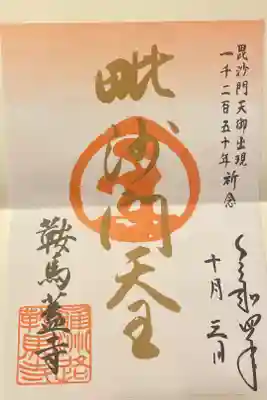 毘沙門天御出現
一千二百五十年祈念
令和四年
十月三日
毗沙門天王
鞍馬蓋寺